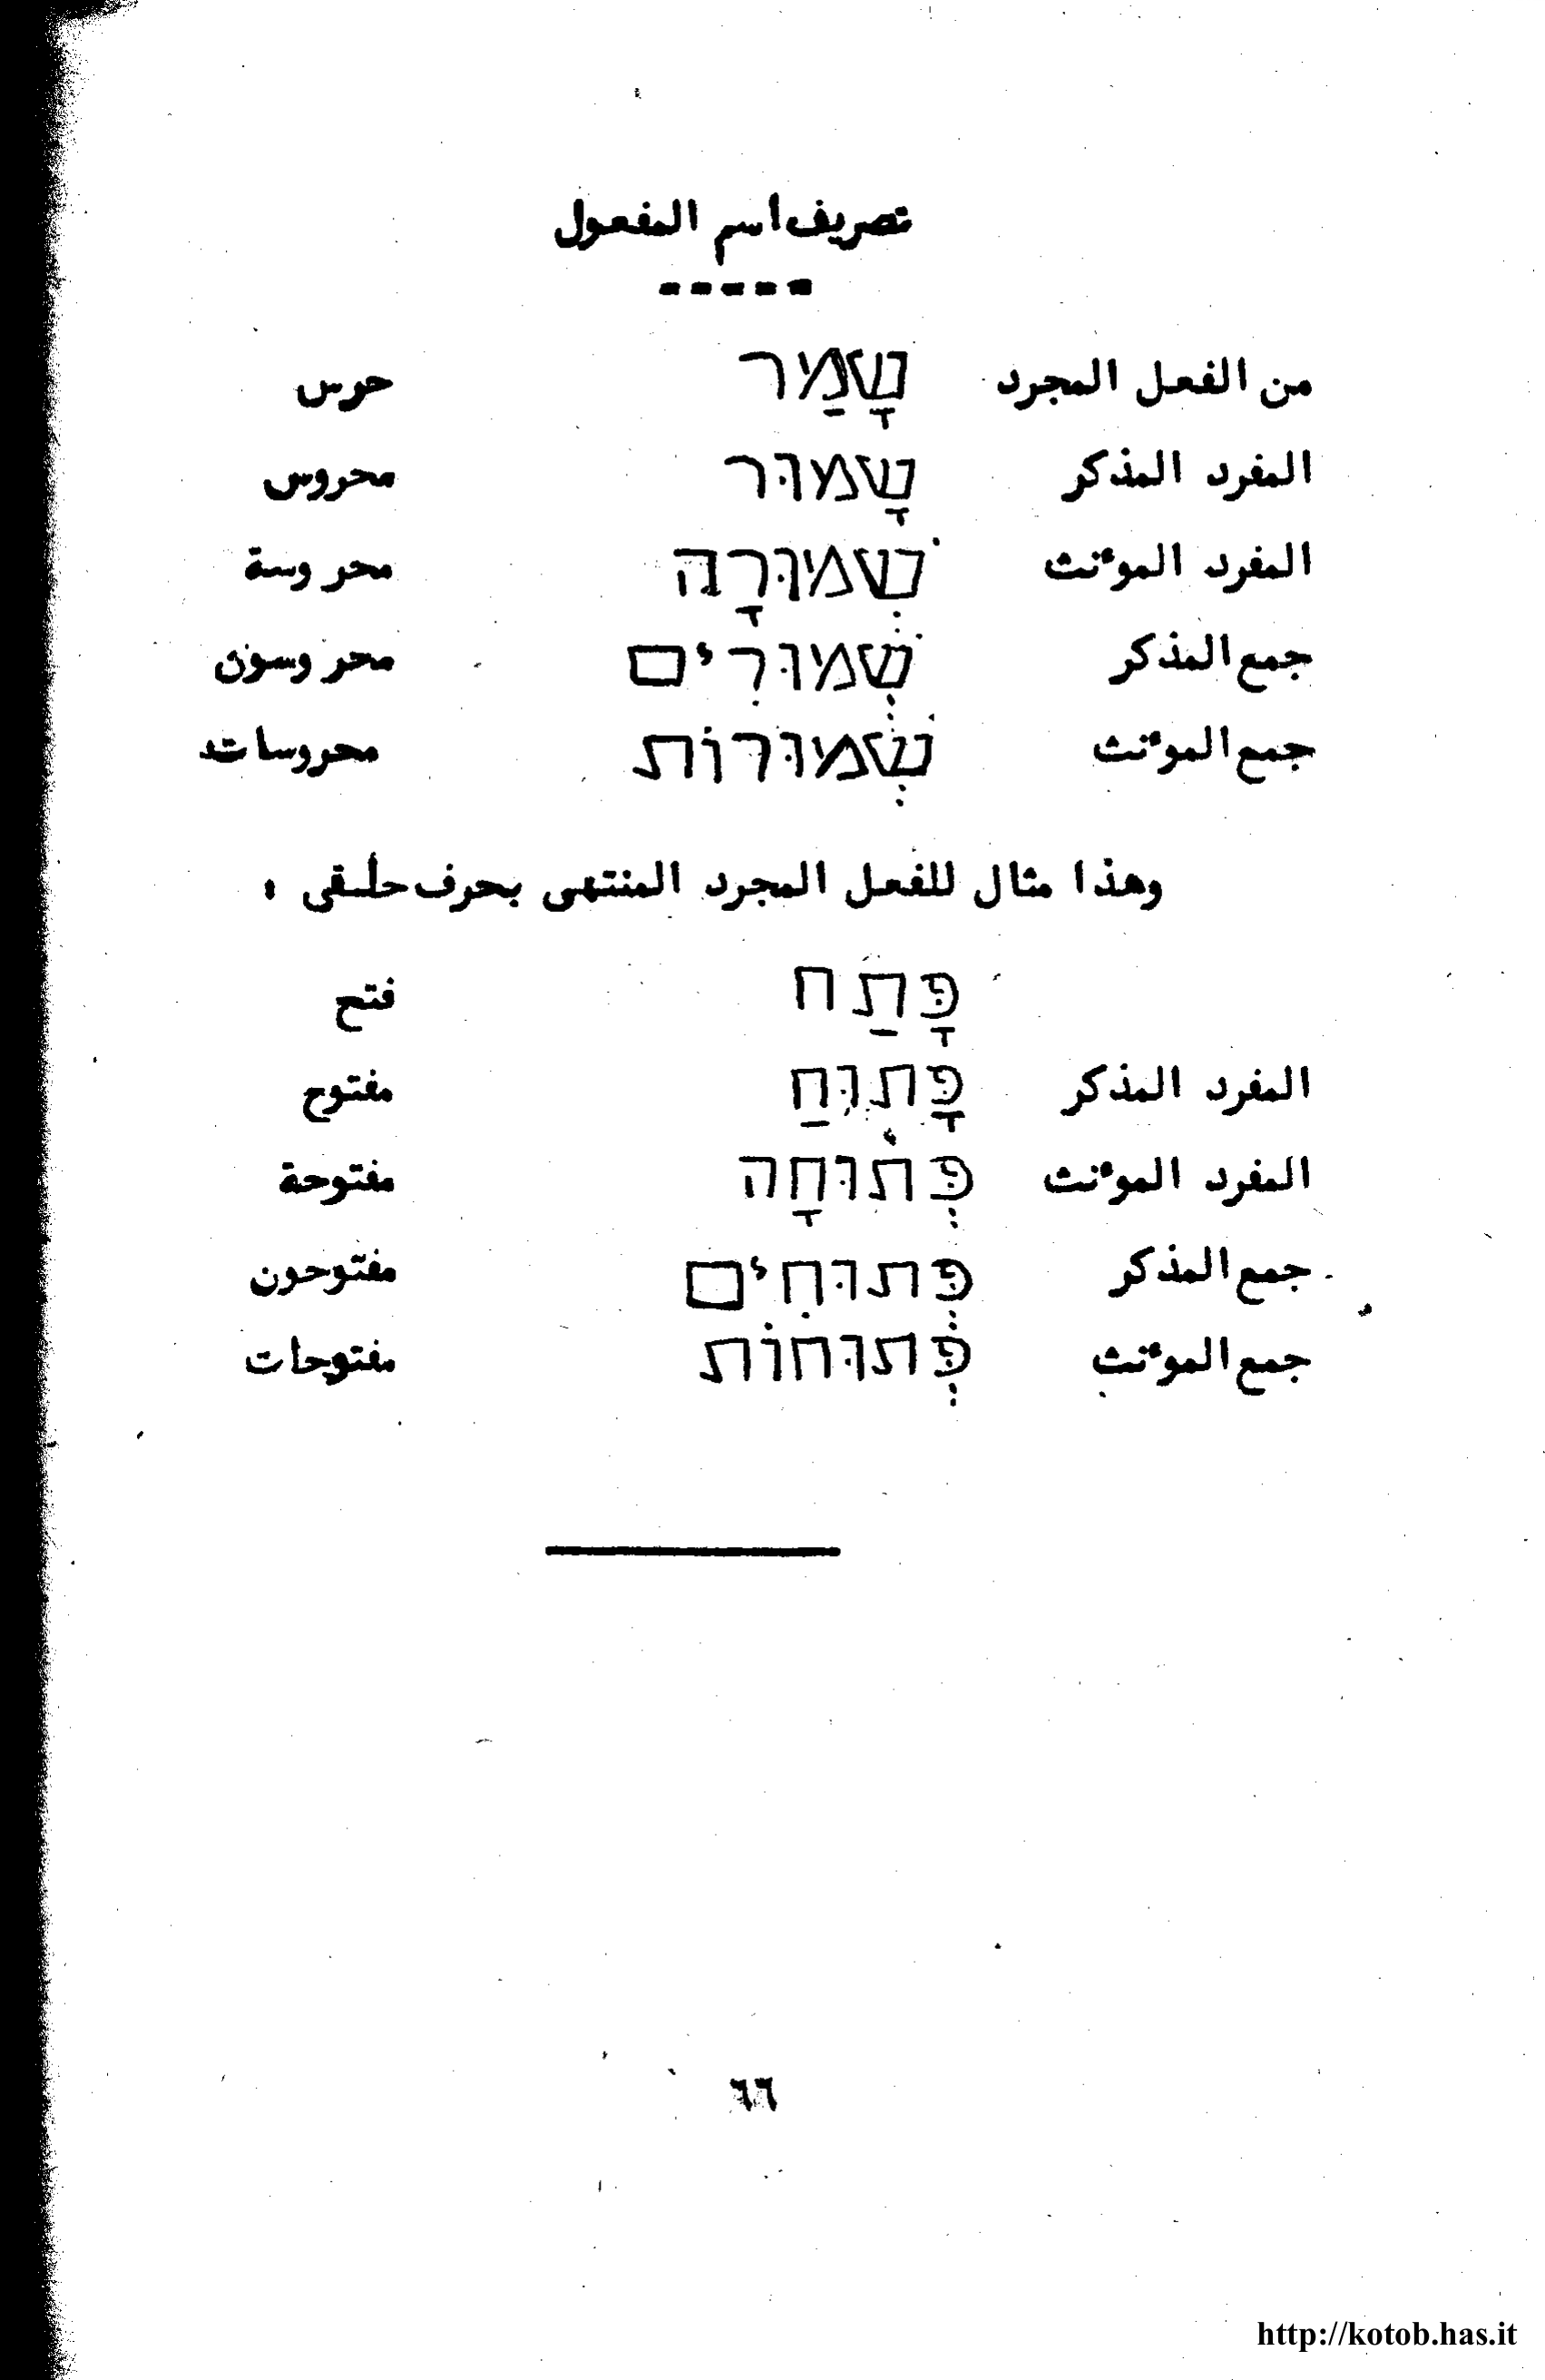 تصريف اسم المفعول
من الفعل المجرد שָׁמַר حرس
المفرد المذكر שָׁמוּר محروس
المفرد المؤنث שְׁמוּרָה محروسة
جمع المذكر שְׁמוּרִים محروسون
جمع المؤنث שְׁמוּרוֹת محروسات
وهذا مثال للفعل المجرد المنتهى بحرف حلقى :
פָּתַח فتح
المفرد المذكر פָּתוּחַ مفتوح
المفرد المؤنث פְּתוּחָה مفتوحة
جمع المذكر פְּתוּחִים مفتوحون
جمع المؤنث פְּתוּחוֹת مفتوحات
٦٦
http://kotob.has.it